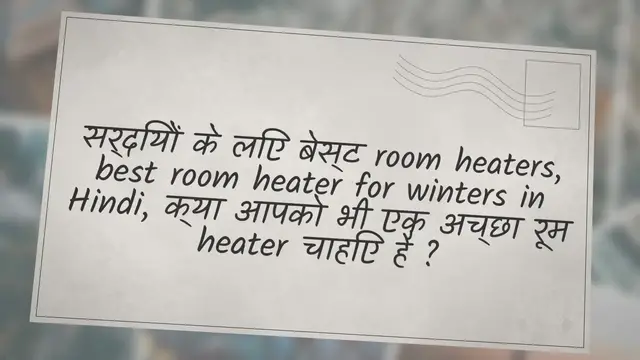 सर्दियों के लिए बेस्ट room heaters,
best room heater for winters in
Hindi, क्या आपको भी एक अच्छा रूम
heater चाहिए है ?